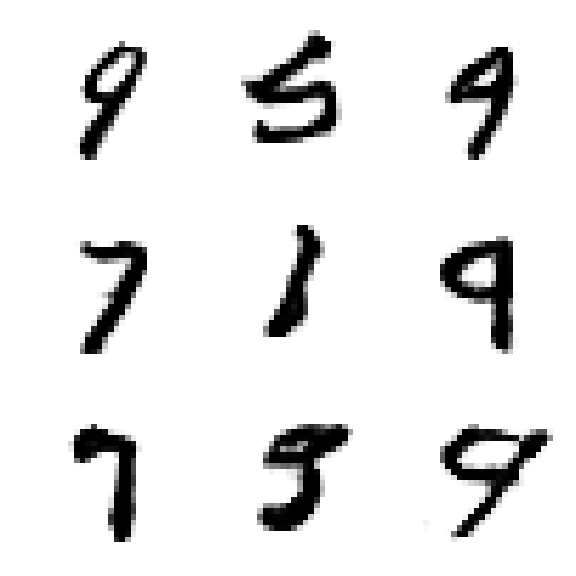 9 5 9
7 1 9
7 5 9